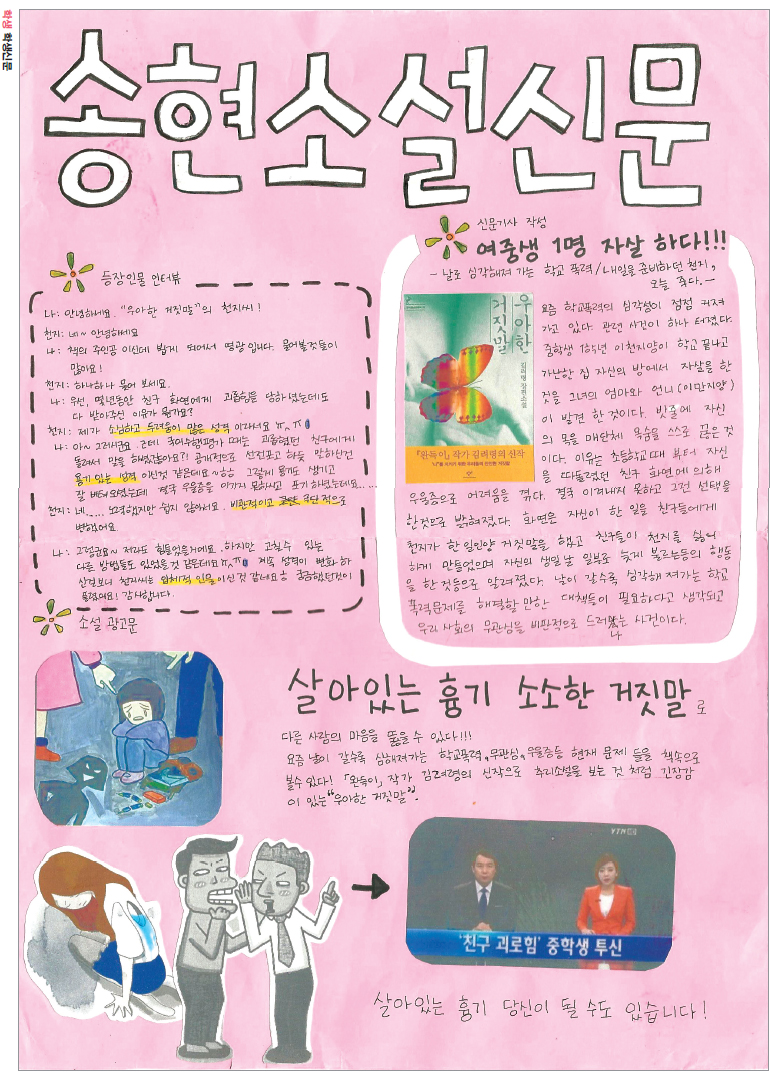 학생 학생신문
송현소설신문
등장인물 인터뷰
나: 안녕하세요. "우아한 거짓말"의 천지씨!
천지: 네~ 안녕하세요
나: 책의 주인공 이신데 뵙게 되어서 영광입니다. 물어볼것들이
많아요!
천지: 하나하나 물어 보세요.
나: 우선, 몇년동안 친구 화연에게 괴롭힘을 당하셨는데도
다 받아주신 이유가 뭔가요?
천지: 제가 소심하고 두려움이 많은 성격 이라서요 ㅠ^ㅠ
나: 아~ 그러시군요. 근데 국어수행평가 때는 괴롭혔던 친구에게
돌려서 말을 하셨잖아요?! 공개적으로 선전포고 하듯 말하신건
용기 있는 성격 이신것 같은데요~ㅎㅎ 그렇게 용기도 생기고
잘 버텨오셨는데 결국 우울증을 이기지 못하시고 포기하셨는데요......
천지: 네..... 노력했지만 쉽지 않아서요. 비관적이고 극단적으로
변했어요
나: 그랬군요~ 저라도 힘들었을거에요. 하지만 고칠수 있는
다른 방법들도 있었을것 같은데요 ㅠ^ㅠ 계속 성격이 변화하
신걸보니 천지씨는 입체적 인물이신것 같네요ㅎ 궁금했던것이
풀렸어요! 감사합니다.
신문기사 작성
여중생 1명 자살 하다!!!
- 날로 심각해져 가는 학교 폭력/내일을 준비하던 천지,
오늘 죽다. -
우아한
거짓말
김려령 장편소설
『완득이』 작가 김려령의 신작
요즘 학교폭력의 심각성이 점점 커져
가고 있다. 관련 사건이 하나 터졌다.
중학생 1학년 이천지양이 학교 끝나고
가난한 집 자신의 방에서 자살을 한
것을 그녀의 엄마와 언니(이만지양)
이 발견 한 것이다. 밧줄에 자신
의 목을 매단체 목숨을 스스로 끊은 것
이다. 이유는 초등학교때 부터 자신
을 따돌렸던 친구 화연에 의해
우울증으로 어려움을 겪다. 결국 이겨내지 못하고 그런 선택을
한것으로 밝혀졌다. 화연은 자신이 한 일을 친구들에게
천지가 한 일인양 거짓말을 했고 친구들이 천지를 싫어
하게 만들었으며 자신의 생일날 일부로 늦게 부르는등의 행동
을 한 것등으로 알려졌다. 날이 갈수록 심각해 져가는 학교
폭력문제를 해결할만한 대책들이 필요하다고 생각되고
우리 사회의 무관심을 비판적으로 드러났는 사건이다.
소설 광고문
살아있는 흉기 소소한 거짓말로
다른 사람의 마음을 뚫을 수 있다!!!
요즘 날이 갈수록 심해져가는 학교폭력, 무관심, 우울증등 현재 문제 들을 책속으로
볼수 있다! 「완득이」 작가 김려령의 신작으로 추리소설을 보는 것 처럼 긴장감
이 있는 "우아한 거짓말".
YTN
'친구 괴로힘' 중학생 투신
살아있는 흉기 당신이 될 수도 있습니다!